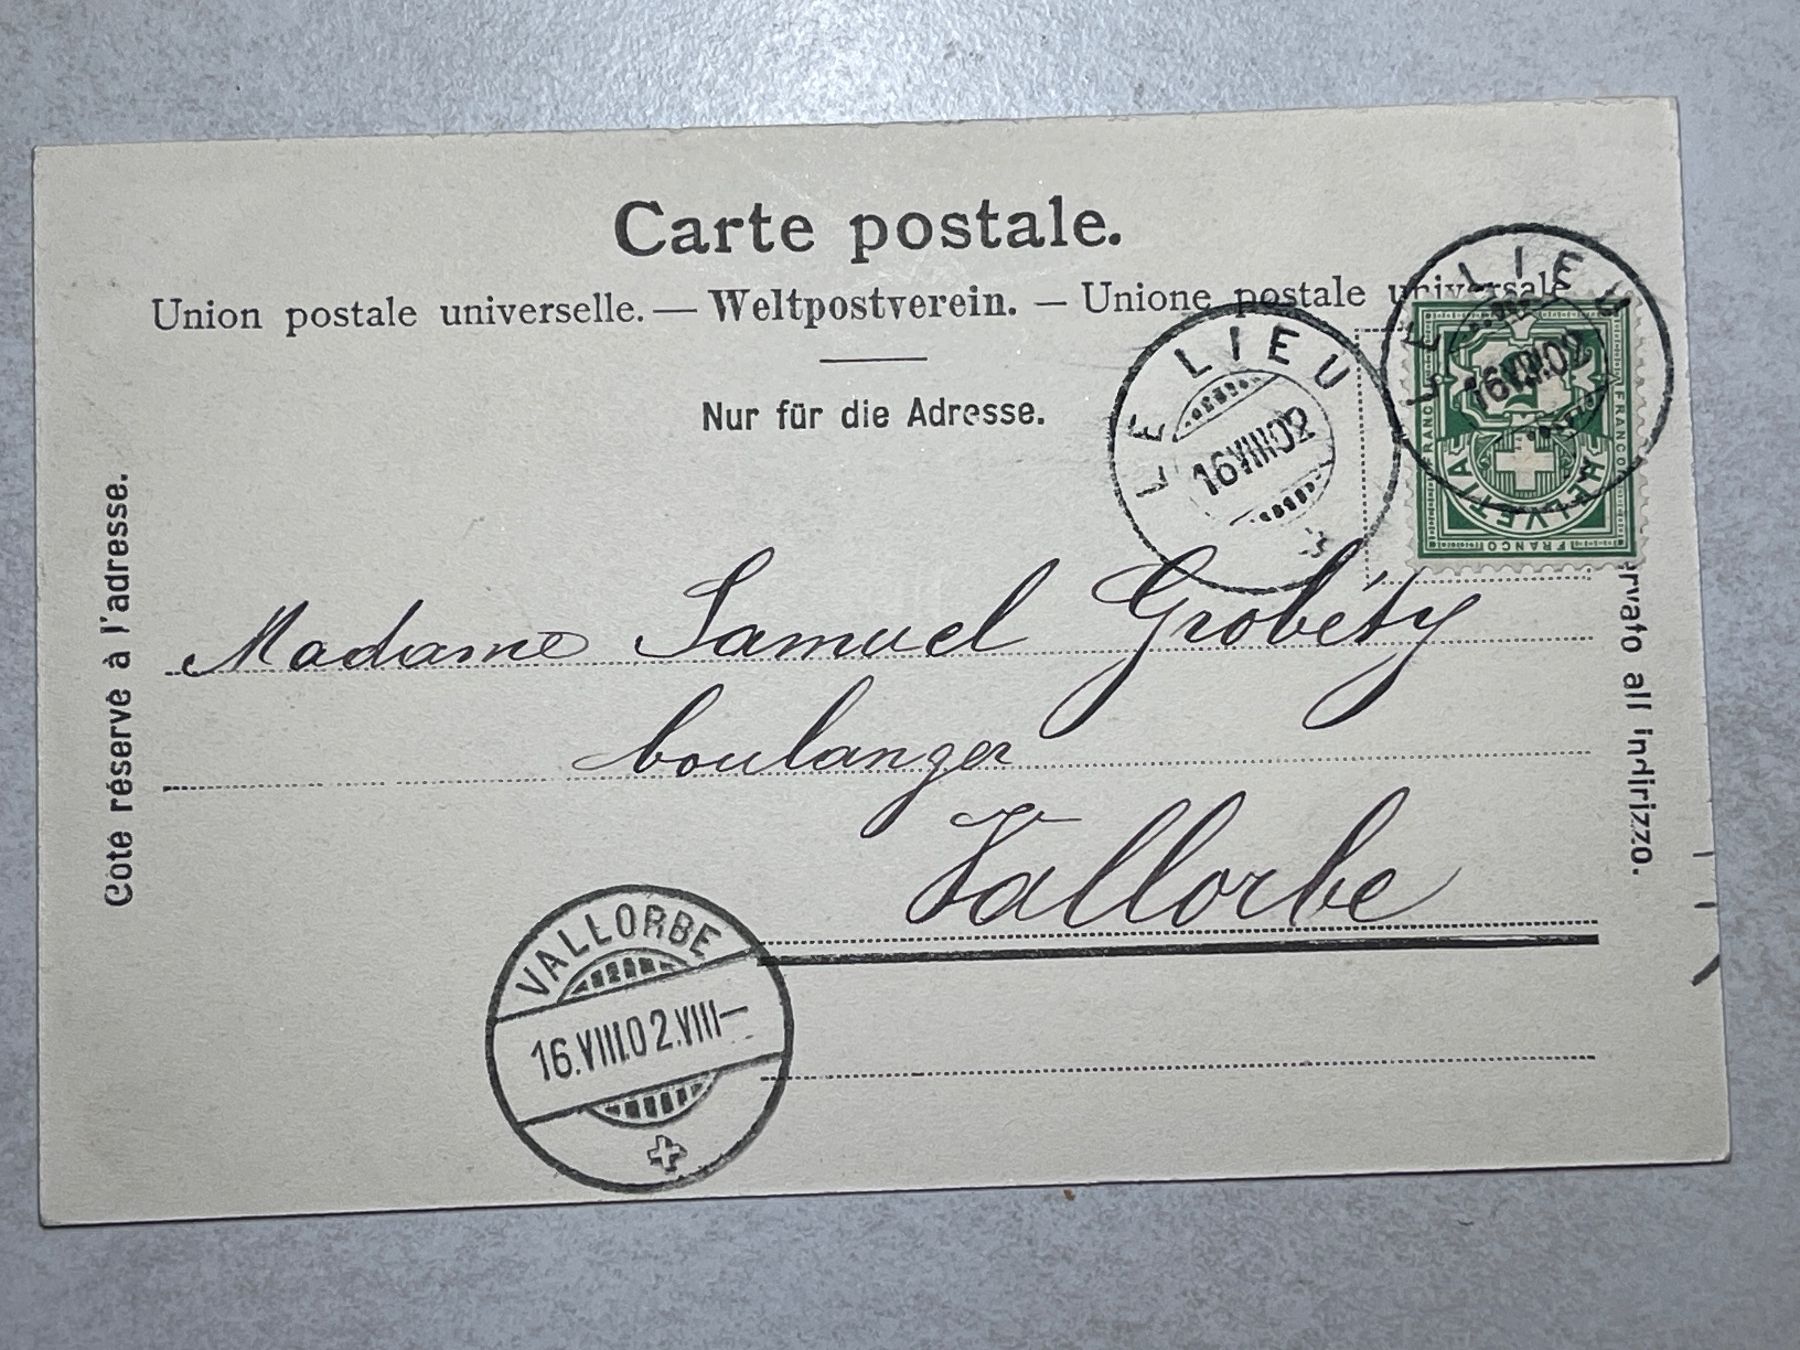 Carte postale.
Union postale universelle. — Weltpostverein. — Unione postale universale
Nur für die Adresse.
Côté réservé à l'adresse.
LE LIEU
16 VIII 02
LE LIEU
16 VIII 02
FRANCO
FRANCO
HELVETIA
FRANCO
Madame Samuel Grobéty
boulanger
Vallorbe
rvato all indirizzo.
VALLORBE
16.VIII.02.VIII—